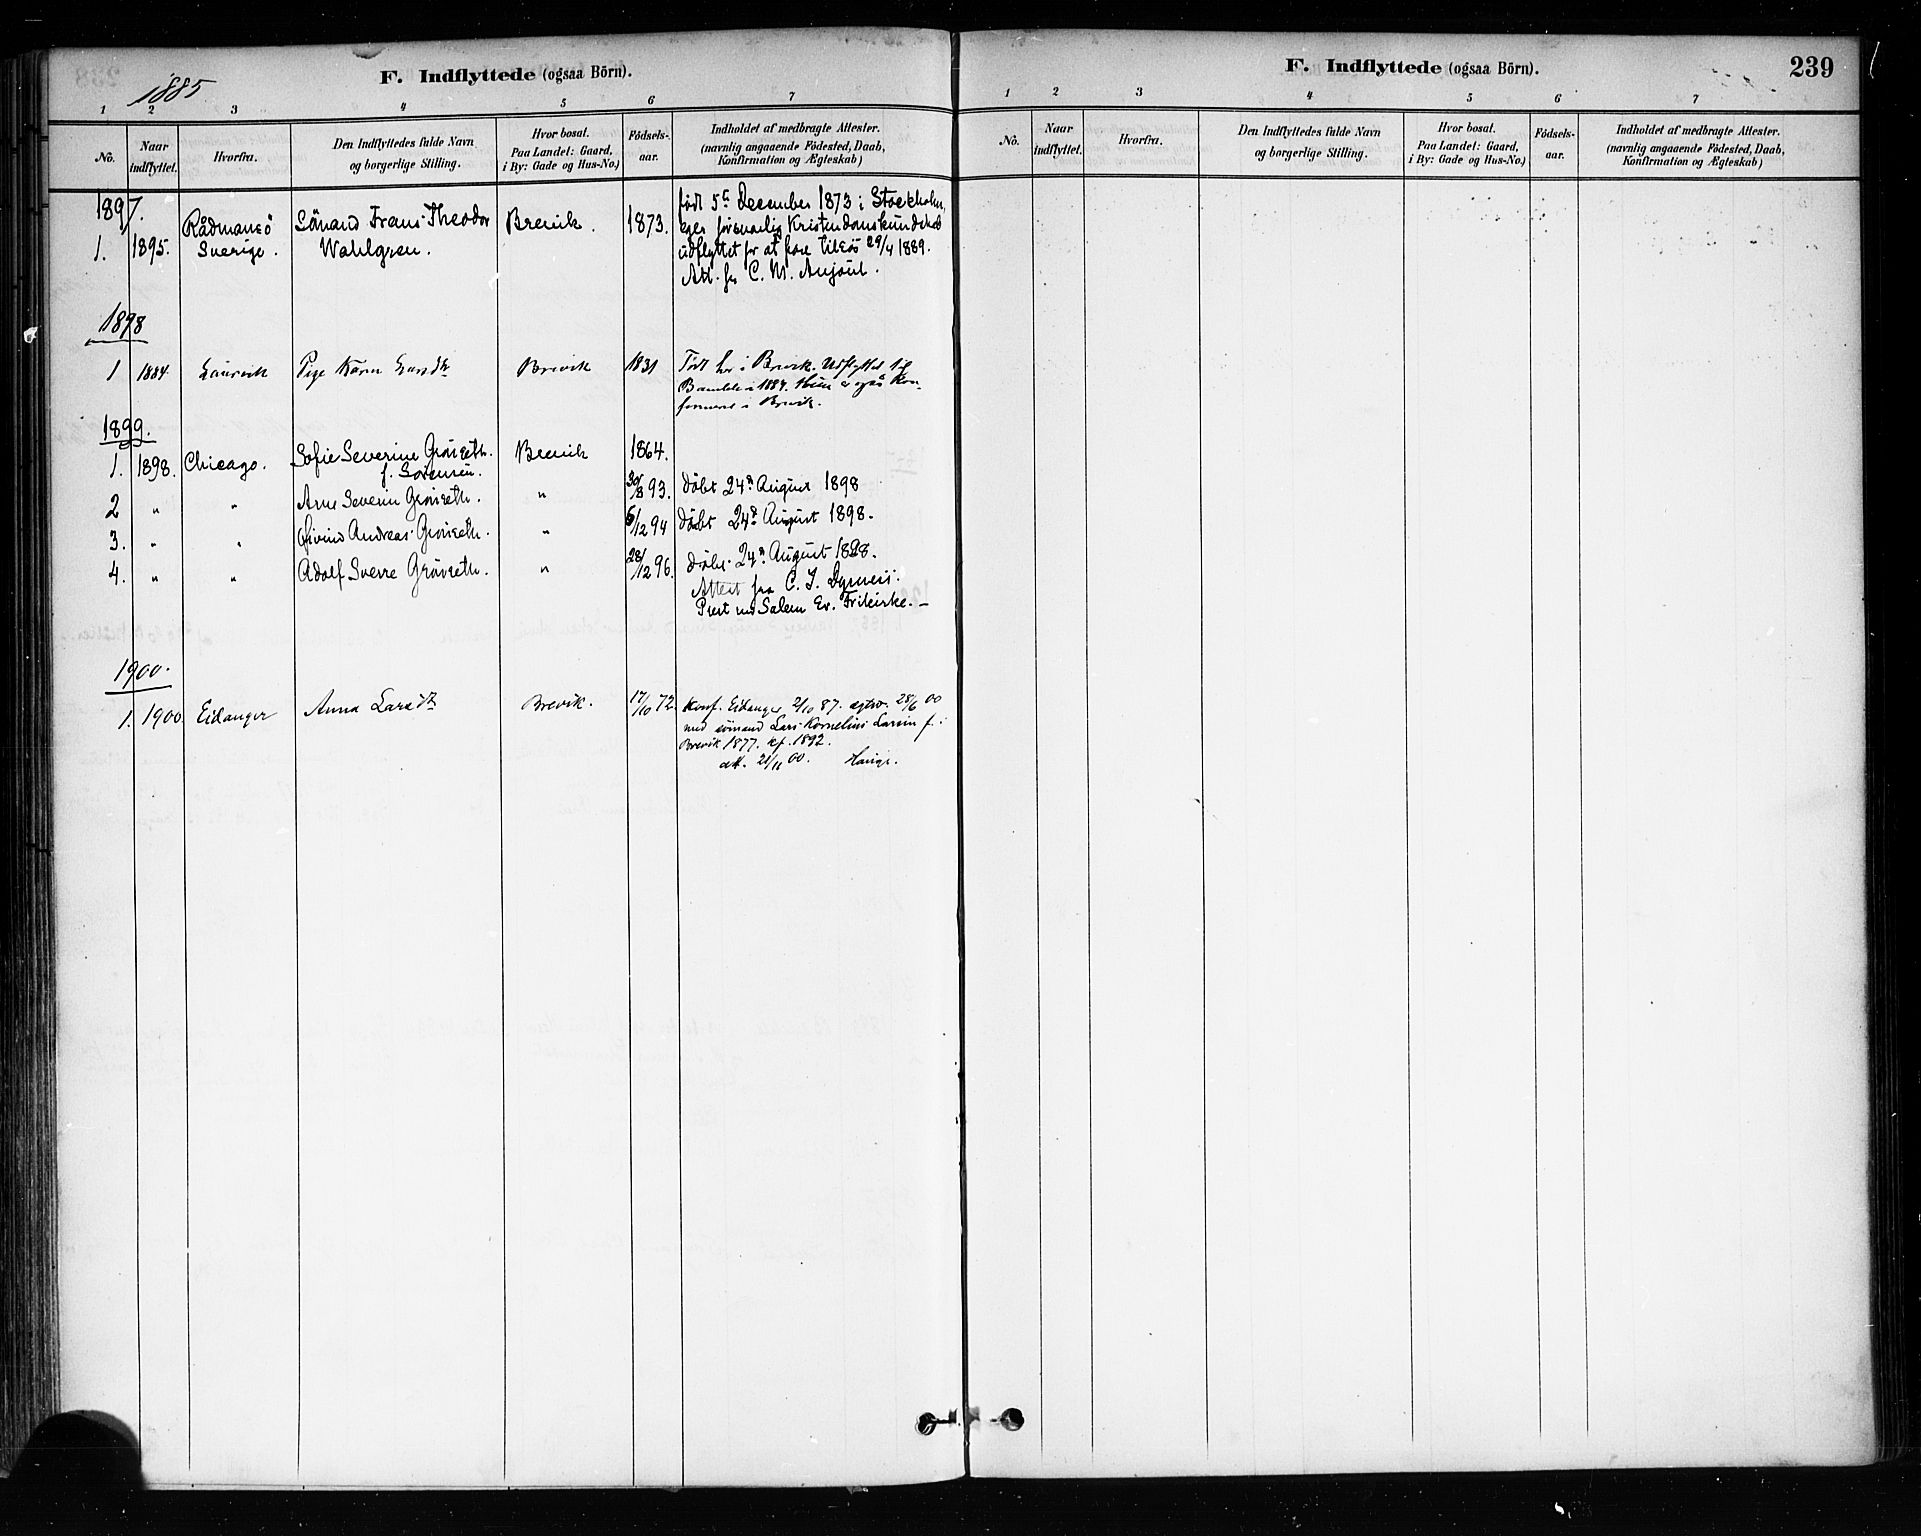 1885
F. Indflyttede (ogsaa Börn).
1 2 3 4 5 6 7
No. Naar indflyttet. Hvorfra. Den Indflyttedes fulde Navn og borgerlige Stilling. Hvor bosat. Paa Landet: Gaard, i By: Gade og Hus-No.) Födsels-aar. Indholdet af medbragte Attester. (navnlig angaaende Födested, Daab, Konfirmation og Ægteskab)
1897.
1. 1895. Rådmansö Sverige. Sömand Frans Theodor Wahlgren. Brevik. 1873. født 5te December 1873 i Stockholm,
eger försvarlig Kristendomskundskab
udflyttet for at fare tilsös 29/4 1889.
Att. fr C. M.
1898
1 1884. Laurvik Pige Karen Brevik 1831 Født her i Brevik. Udflyttet til
Bamble i 1884. Hun er også Kon-
firmeret i Brevik.
1899.
1. 1898. Chicago. Sofie Severine Gröiseth. f. Sörensen. Brevik 1864.
2 " " Arne Severin Gröiseth. " 30/8 93. döbt 24de August 1898
3. " " Øivind Andreas Gröiseth. " 6/12 94 döbt 24de August 1898.
4. " " Adolf Sverre Gröiseth. " 28/12 96. döbt 24de August 1898.
Attest fra C. I.
Prest ved Salem Ev. Frikirke. —
1900.
1. 1900 Eidanger Anna Brevik. 17/10 72. Konf. Eidanger 2/10 87. egtev. 28/6 00
med sömand Lars Kornelius Larsen f. i
Brevik 1877. kf. 1892.
att. 21/11 00. Hauge.
F. Indflyttede (ogsaa Börn).
239
1 2 3 4 5 6 7
No. Naar indflyttet. Hvorfra. Den Indflyttedes fulde Navn og borgerlige Stilling. Hvor bosat. Paa Landet: Gaard, i By: Gade og Hus-No.) Födsels-aar. Indholdet af medbragte Attester. (navnlig angaaende Födested, Daab, Konfirmation og Ægteskab)